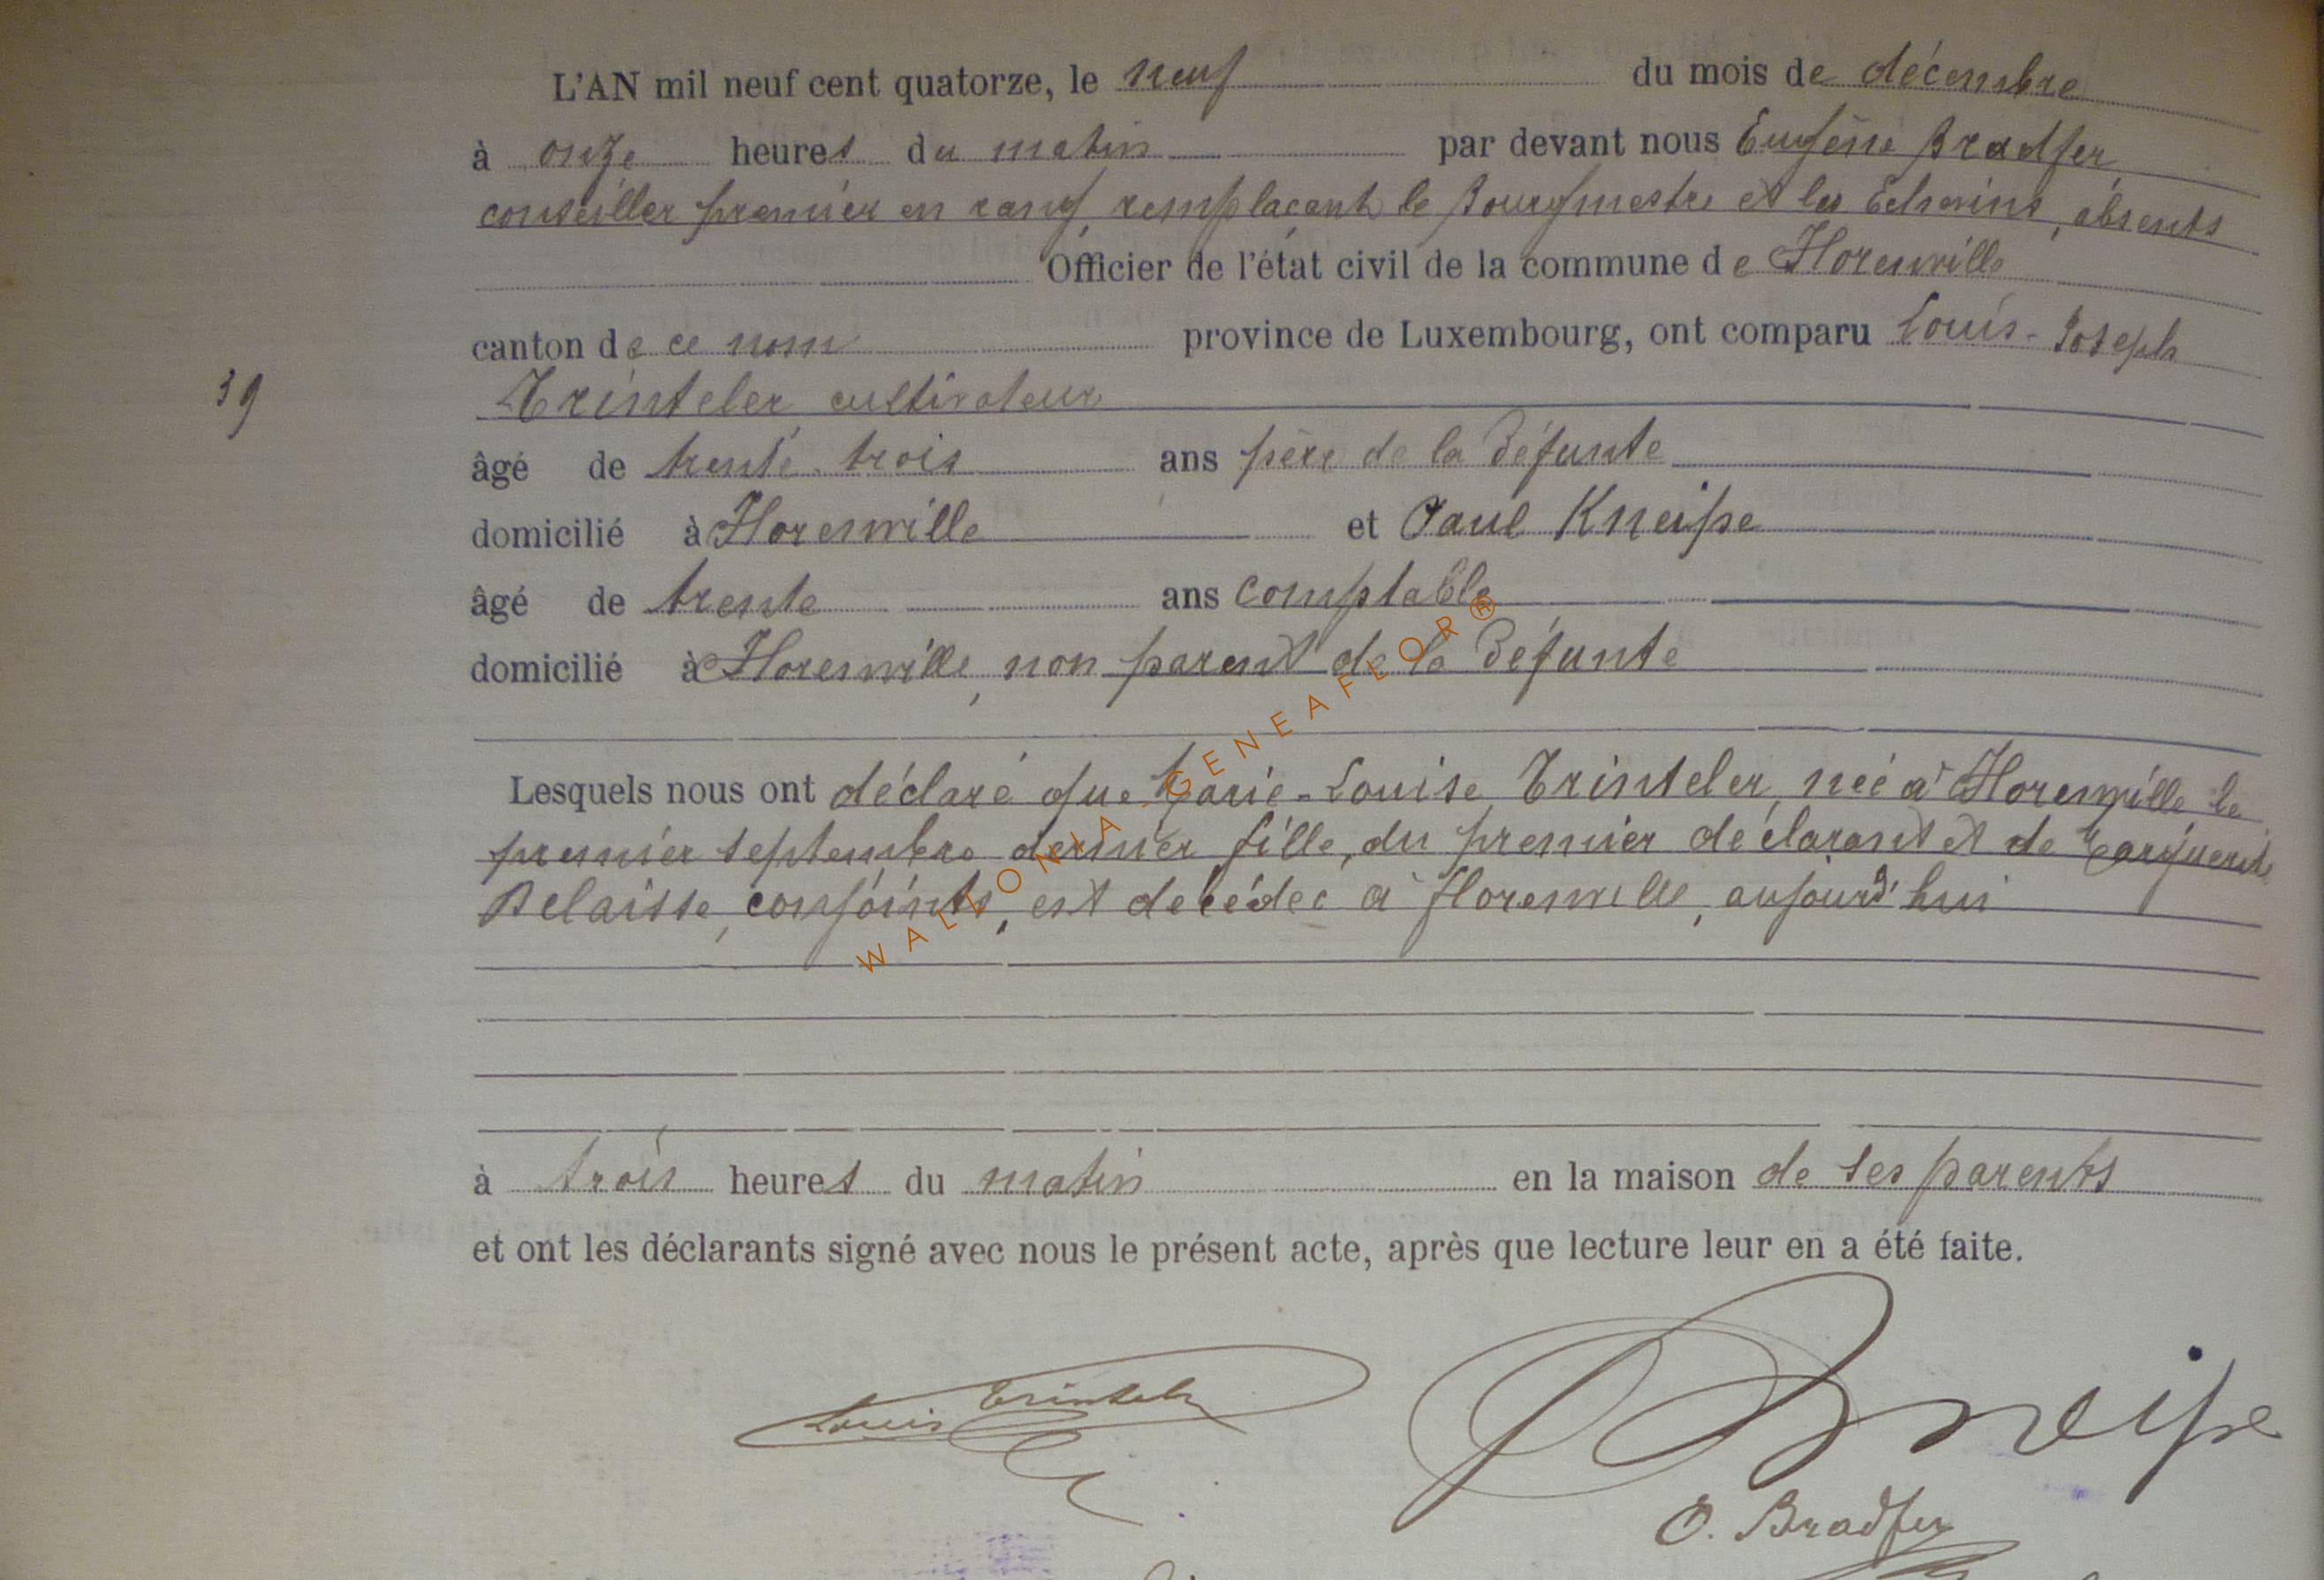 L'AN mil neuf cent quatorze, le neuf du mois de décembre
à onze heures du matin par devant nous Eugène Bradfer
conseiller premier en rang remplaçant le Bourgmestre et les Echevins, absents
Officier de l'état civil de la commune de Florenville
canton de ce nom province de Luxembourg, ont comparu Louis-Joseph
39
Trinteler cultivateur
âgé de trente-trois ans père de la défunte
domicilié à Florenville et Paul Kneipe
âgé de trente ans comptable
domicilié à Florenville, non parent de la défunte
Lesquels nous ont déclaré que Marie-Louise Trinteler, née à Florenville le
premier septembre dernier fille, du premier déclarant et de Marguerite
Belaisse, conjoints, est décédée à Florenville, aujourd'hui
WALLONIA-GENEAFLOR®
à trois heures du matin en la maison de ses parents
et ont les déclarants signé avec nous le présent acte, après que lecture leur en a été faite.
Louis Trinteler
Kneipe
E. Bradfer